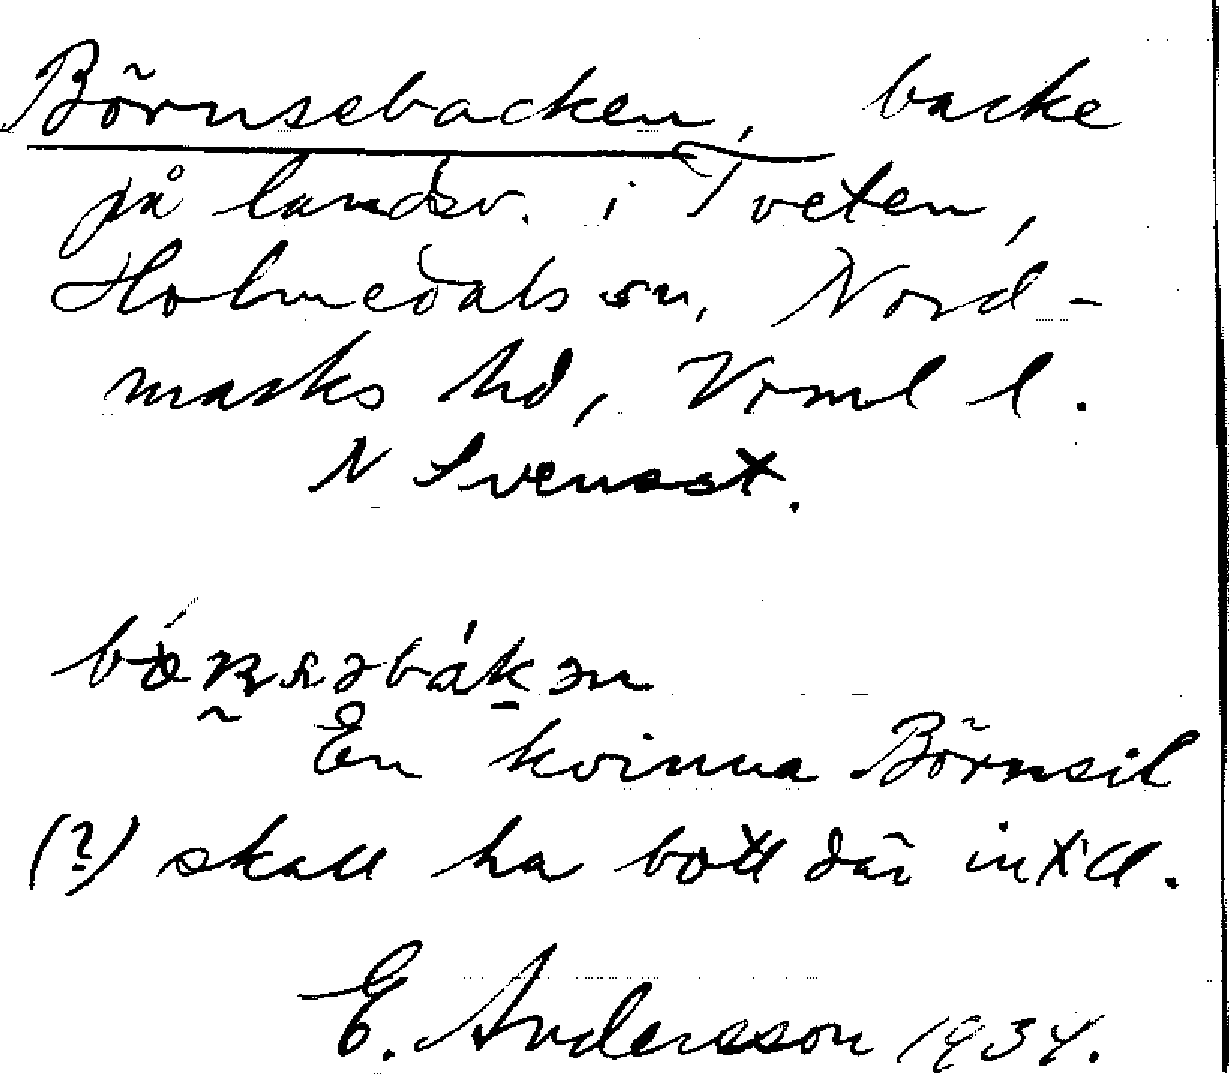 Börnsebacken, backe
på landsv. i Tveten,
Holmedals sn, Nord-
marks hd, Vrml l.
N Svensst.
En kvinna Börnsil
(?) skall ha bott där intill.
E. Andersson 1934.